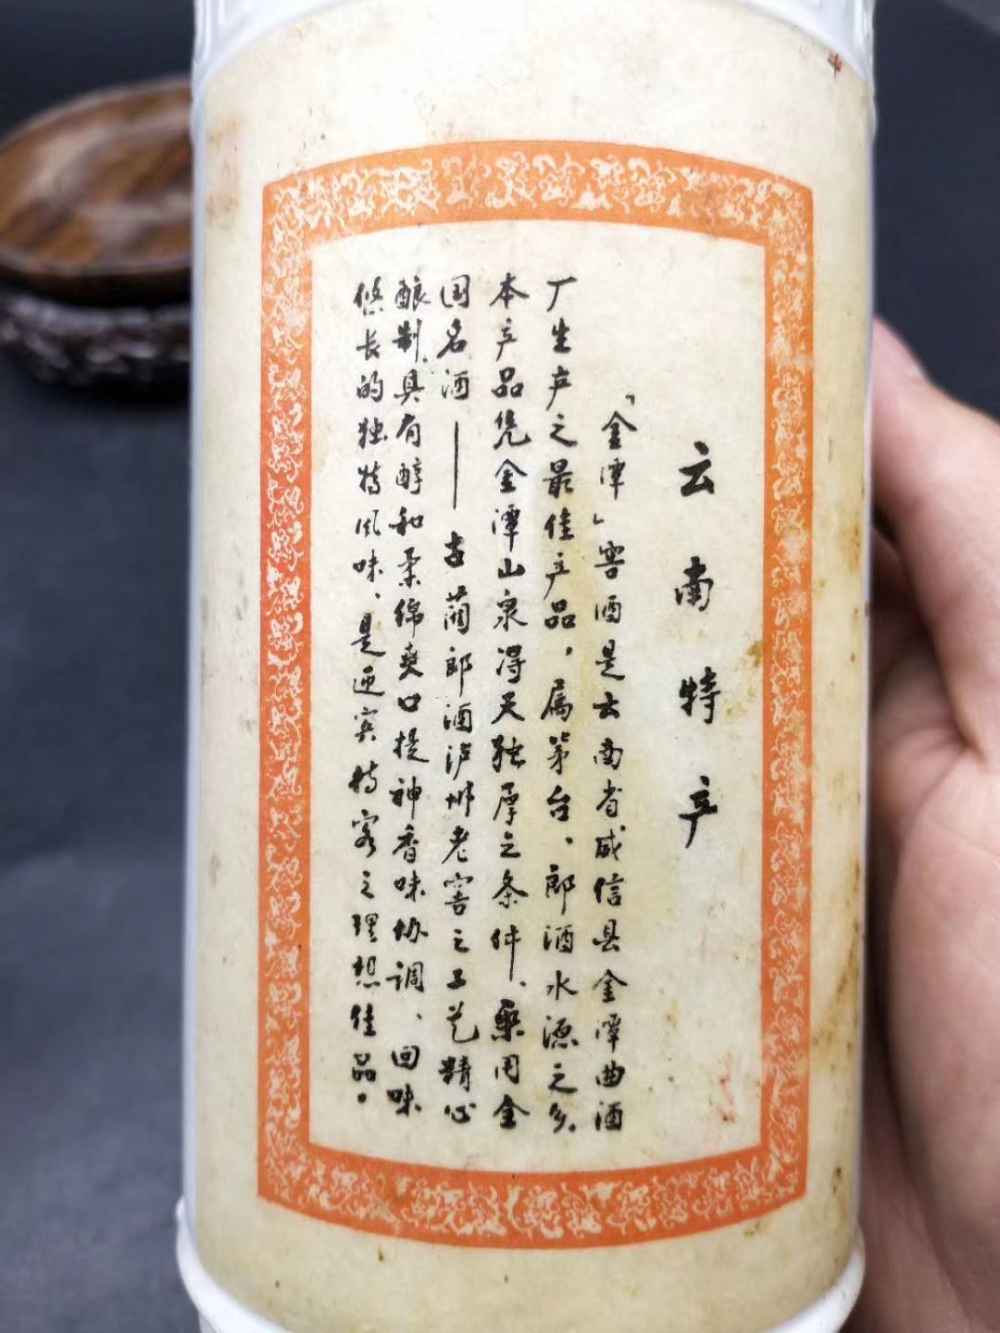 云南特产
「金潭」窖酒是云南省威信县金潭曲酒
厂生产之最佳产品，属茅台、郎酒水源之乡。
本产品凭金潭山泉得天独厚之条件、采用全
国名酒——古蔺郎酒泸州老窖之工艺精心
酿制、具有醇和柔绵爽口提神香味协调、回味
悠长的独特风味、是迎宾待客之理想佳品。